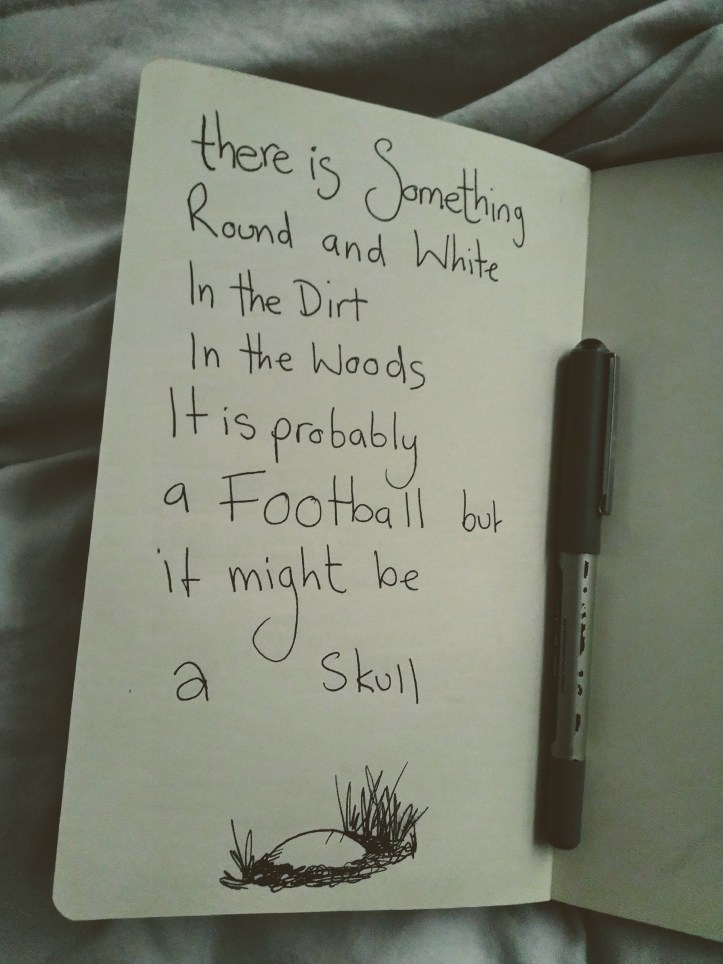 there is Something
Round and White
In the Dirt
In the Woods
It is probably
a Football but
it might be
a Skull